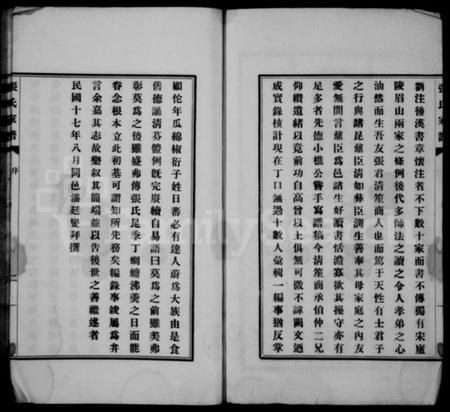 張氏家譜
劉注後漢書章懷注省不下數十家而書不傳獨有宋廬
陵眉山兩家之條例後代多師法之讀之令人孝弟之心
油然而生吾友張君清笙商人也而篤于天性有士君子
之行與諸昆慈臣清如彝臣調生善奉其母家庭之內友
愛無間言慈臣爲邑諸生好讀書恬澹寡欲其操守亦有
足多者先德小樵公嘗手寫譜稿今清笙商承伯仲二兄
仰纘遺緒以竟前功自高曾以上俱無可徵不諱闕文迺
成實錄核計現在丁口無過十數人彙輯一編事猶反掌
顧佗年瓜綿椒衍子姓日蕃必有達人蔚爲大族由是食
舊德誦清芬體例既完賡續自易語曰莫爲之前雖美弗
彰莫爲之後雖盛弗傳張氏昆季丁蜩螗沸羹之日而能
眷念根本立此初基可謂知所先務矣編錄事竣屬爲弁
言余嘉其志故樂敘其簡端並以告後世之善繼述者
民國十七年八月同邑潘廷燮拜撰
張氏家譜
序